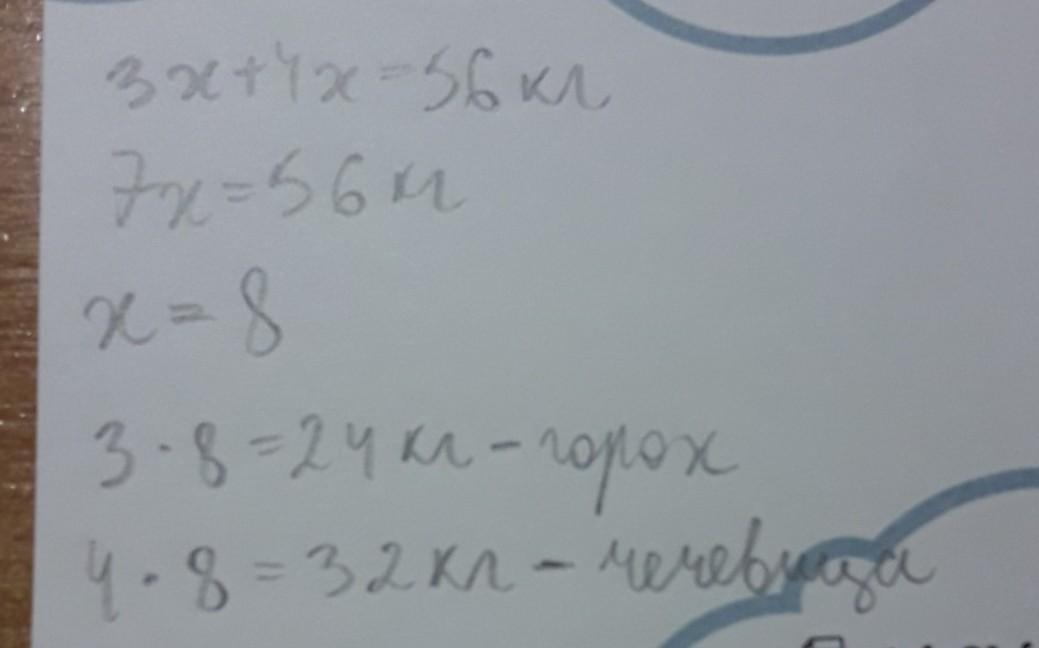 3x+4x=56кг
7x=56кг
x=8
3·8=24кг-горох
4·8=32кг-чечевица